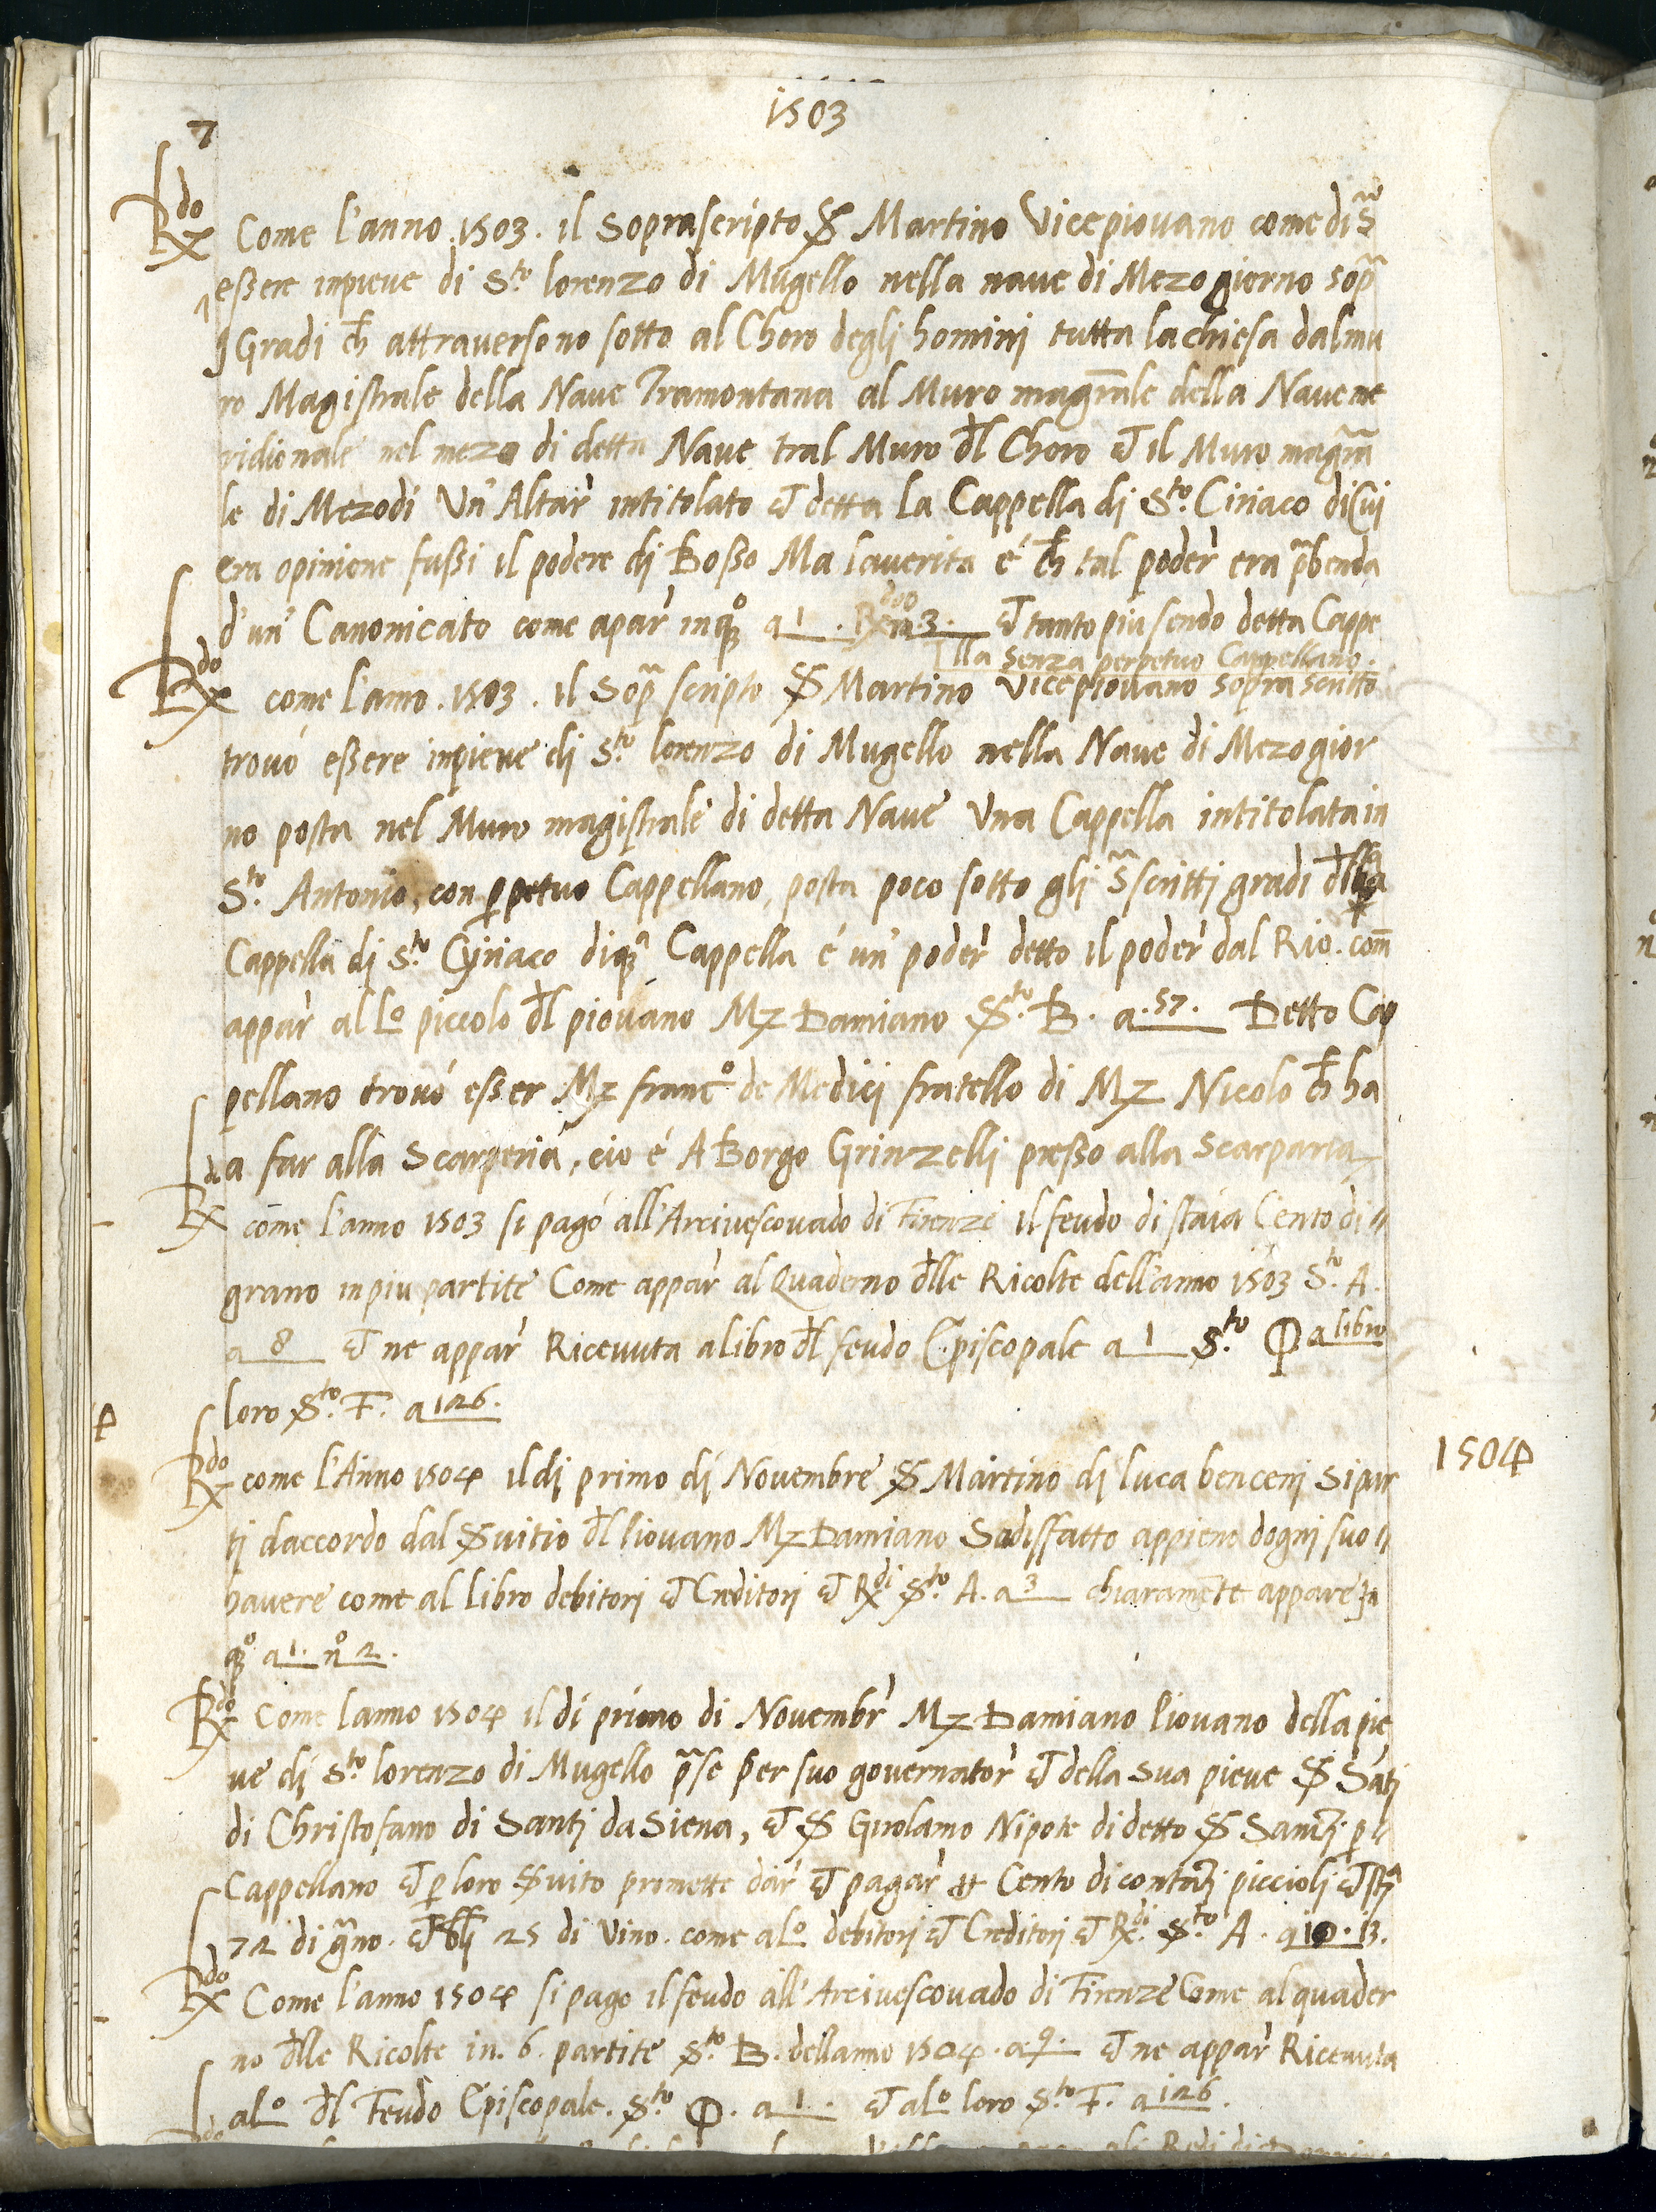 1503
7
Rdo Come l'anno .1503. il Soprascripto S Martino Vicepiovano come di s̃
essere inpieve di Sto lorenzo di Mugello nella nave di Mezo giorno sop̃
j Gradi ch̄ attraversono sotto al Choro deglj hominj tutta lachiesa dalmu
ro Magistrale della Nave Tramontana al Muro magr̃ale della Nave me
ridionale nel mezo di detta Nave tral Muro d̄l Choro et il Muro magr̃a
le di Mezodí Un' Altar̀ intitolato et detta La Cappella dj Sto. Ciriaco di Cuj
era opinione fussi il podere dj Bosso Ma laverita é ch̄ tal poder̀ era p̃benda
d'un' Canonicato come apar̀ inqo a 1. Rdo 3. et tanto piu sendo detta Cappe
lla senza perpetuo Cappellano.
Rdo come l'anno .1503. il Sop̃ scripto S Martino Vicepiovano sopra scritto
trovó essere inpieve dj Sto lorenzo di Mugello nella Nave di Mezogior
no posta nel Muro magistrale di detta Nave Una Cappella intitolata in
Sto. Antonio, con p̱petuo Cappellano, posta poco sotto glj s̃scrittj gradi d̄lla
Cappella dj Sto Cyriaco diqa Cappella é un' poder̀ detto il poder̀ dal Rio. com̃
appar̀ al Lo piccolo d̄l piovano Mz Damiano Sto. B. a.57. Detto Cap
pellano trovó esser Mz franco de Medicj fratello di Mz Nicolo ch̄ ha
da far alla Scarperia, cio é A Borgo Grinzellj presso alla Scarparia
Rdo cōme l'anno 1503 si pagó all'Arcivescovado di Firenze il feudo di staia Cento di
grano inpiu partite Come appar̀ al Quaderno d̄lle Ricolte dell'anno 1503 Sto. A.
a 8 et ne appar̀ Ricevuta alibro d̄l feudo Episcopale a 1 Sto. Φ a libro
loro Sto. F. a 126.
1504
Rdo come l'Anno 1504 il dj primo dj Novembre S Martino dj luca bencenj si par
tj daccordo dal Svitio d̄l Piovano Mz Damiano Sadisfatto appieno dogni suo
havere come al libro debitorj et Creditorj et Rdi Sto. A. a 3 chiaramēte appare in
qo a 1. no 2.
Rdo Come lanno 1504 il di primo di Novembr̀ Mz Damiano Piovano della pie
ve dj Sto lorenzo di Mugello p̃se per suo governator̀ et della sua pieve S Sātj
di Christofano di Santj da Siena, et S Girolamo Nipote di detto S Santj p̱
Cappellano et p̱ loro Svito promette dar̀ et pagar̀ Cento di contantj piccioli et sta
72 di g̃no. et bllj 25 di Vino. come alo debitorj et Creditorj et Rdi. Sto A. a 10. 13.
Rdo Come l'anno 1504 si pago il feudo all'Arcivescovado di Firenze Come al quader
no d̄lle Ricolte in. 6. partite Sto. B. dellanno 1504. a 9. et ne appar̀ Ricevuta
alo d̄l Feudo Episcopale. Sto. Φ. a 1. et alo loro Sto. F. a 126.